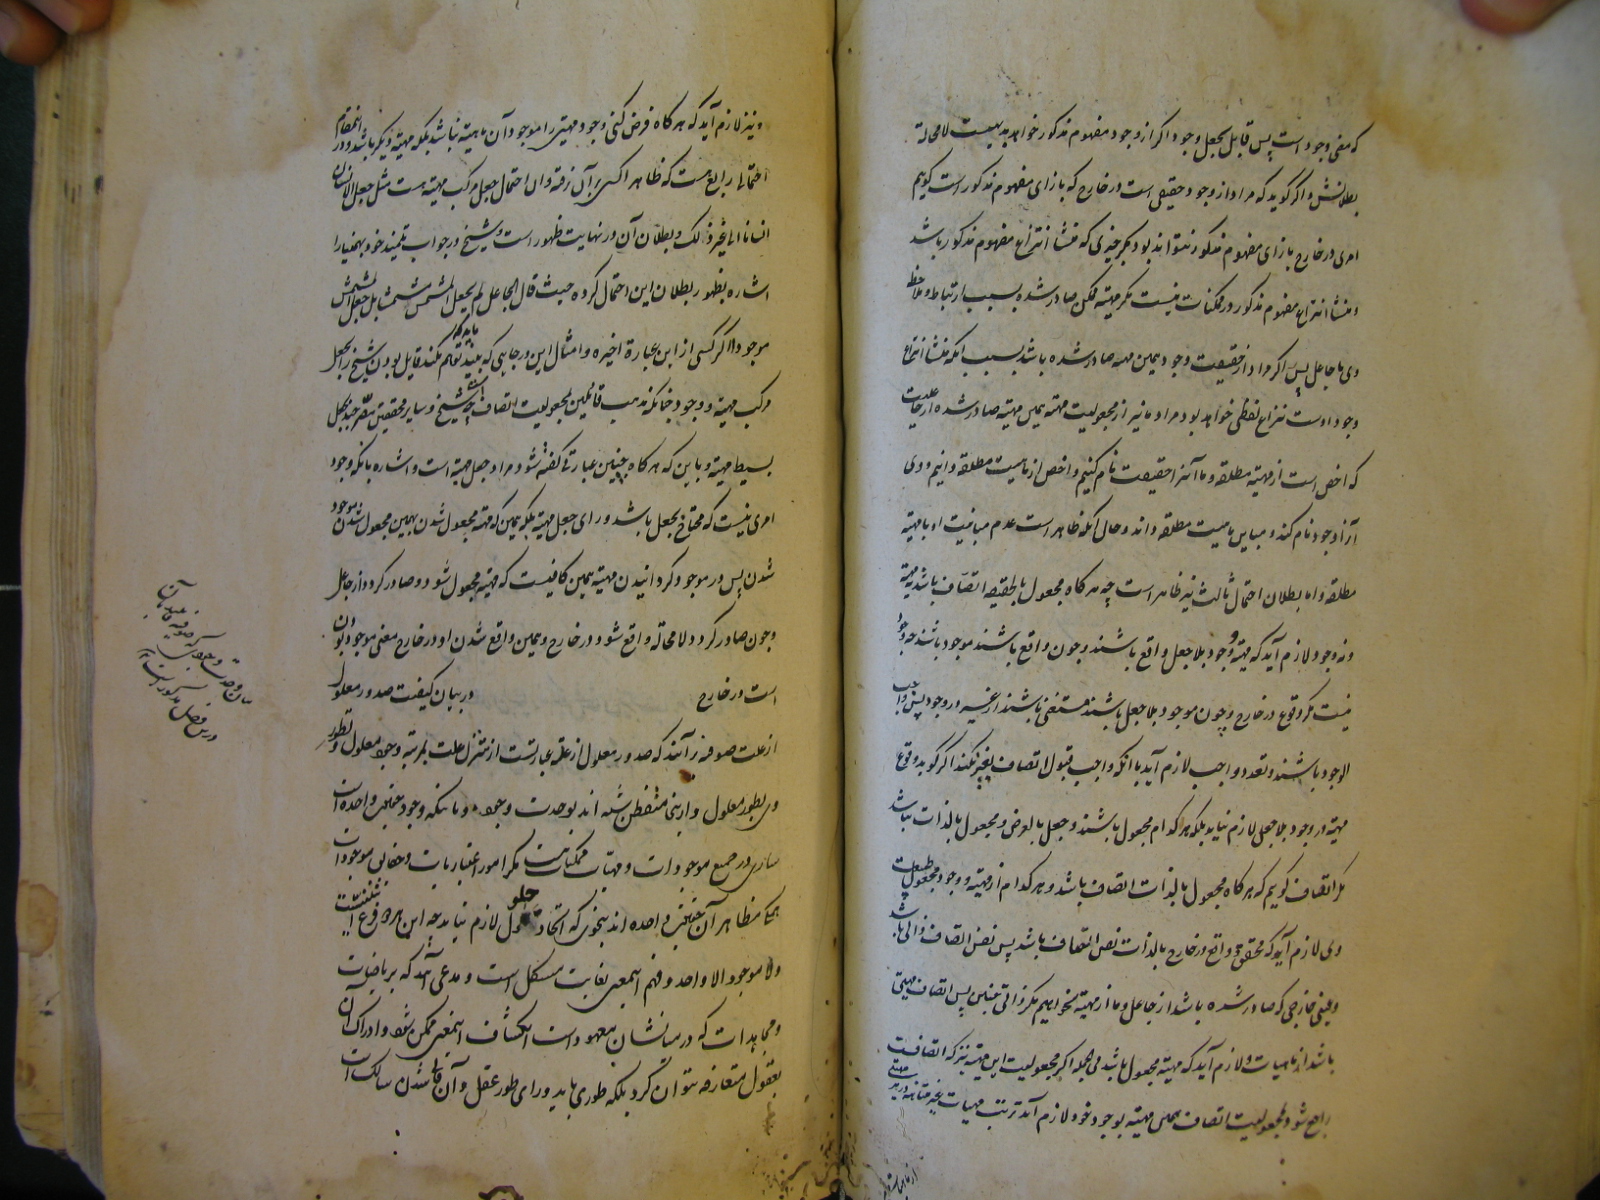 که معنی وجود است پس قابل بجعل وجود اگر از وجود مفهوم مذکور خواهد بدیهیست لامحاله
بطلانش و اگر گوید که مراد از وجود حقیقی است در خارج که بازای مفهوم مذکور است گویم
امری در خارج بازای مفهوم مذکور نتواند بود مگر چیزی که منشأ انتزاع مفهوم مذکور باشد
و منشأ انتزاع مفهوم مذکور در ممکنات نیست مگر مهیته ممکن صادر شده بسبب ارتباط و ملاحظه
وی با جاعل پس اگر مراد از حقیقت وجود همین مهیه صادر شده باشد بسبب آنکه منشأ انتزاع
وجود اوست نزاع لفظی خواهد بود و مراد ما نیز از مجعولیت مهیته همین مهیته صادر شده از جاعلیت
که اخص است از مهیته مطلقه و ما آنرا حقیقت نام کنیم و اخص از ماهیت مطلقه دانیم و وی
آنرا وجود نام کند و مباین ماهیت مطلقه داند و حال آنکه ظاهر است عدم مباینت او با مهیته
مطلقه و اما بطلان احتمال ثالث نیز ظاهر است چه هرگاه مجعول بالحقیقه اتصاف باشد نه مهیته
و نه وجود لازم آید که مهیته و وجود بلا جعل واقع باشند و چون واقع باشند موجود باشند چه وجود
نیست مگر وقوع در خارج و چون موجود بلا جعل باشند مستغنی باشند از غیر در وجود پس واجب
الوجود باشند و تعدد واجب لازم آید با آنکه واجب قبول اتصاف بغیر نکند اگر گوید وقوع
مهیته و وجود بلا جعل لازم نیاید بلکه هر کدام مجعول باشند و جعل بالعرض و مجعول بالذات نباشد
مگر اتصاف گویم که هرگاه مجعول بالذات اتصاف باشد و هر کدام از مهیته و وجود مجعول
ولی لازم آید که متحقق و واقع در خارج بالذات نفس اتصاف باشد پس نفس اتصاف ذاتی باشد
و عینی خارجی که صادر شده باشد از جاعل و ما از مهیته نخواهیم مگر ذاتی چنین پس اتصاف مهیتی
باشد از ماهیات و لازم آید که مهیته مجعول باشد فی الجمله اگر مجعولیت این مهیته نیز که اتصافست
راجع شود بمجعولیت اتصاف همین مهیته بوجود خود لازم آید ترتب مهیات غیر متناهیه
و نیز لازم آید که هرگاه فرض کنی وجود مهیتی را موجود آن ماهیته نباشد بلکه مهیته دیگر باشد و در اینمقام
احتمالی رابع هست که ظاهرا کسی بر آن نرفته و آن احتمال جعل مرکب مهیته هست مثل جعل الانسان
انسانا الی غیر ذلک و بطلان آن در نهایت ظهور است و شیخ در جواب تلمیذ خود بهمنیار
اشاره بظهور بطلان این احتمال کرده حیث قال الجاعل لم یجعل المشمش مشمشا بل جعل المشمش
موجودا اگر کسی از این عبارة اخیره و امثال این در جایی که بیند توهم نکند قایل بودن شیخ را بجعل
مرکب مهیته و وجود چنانکه مذهب قائلین بمجعولیت اتصاف است چه شیخ و سایر محققین مصرحند بجعل
بسیط مهیته و باین که هرگاه چنین عبارتی گفته شود مراد جعل مهیته است و اشاره بانکه وجود
امری نیست که محتاج بجعل باشد ورای جعل مهیته بلکه همین که مهیته مجعول شدن بهمین مجعول شدن موجود
شدن پس در موجود گردانیدن مهیته همین کافیست که مهیته مجعول شود و صادر گردد از جاعل
و چون صادر گردد لا محاله واقع شود در خارج و همین واقع شدن او در خارج معنی موجود بودن
است در خارج در بیان کیفیت صدور معلول
از علت صوفیه برآنند که صدور معلول از علت عبارتست از تنزل علت بمرتبه وجود معلول و تطور
وی بطور معلول و از اینجا متفطن شده اند بوحدت وجود و بانکه وجود حقیقتی واحده است
ساری در جمیع موجودات و مهیات ممکنات نیست مگر امور اعتباریات و حقایق موجودات
همه مظاهر آن حقیقت واحده اند بنحوی که اتحاد و حلول لازم نیاید چه این هر دو فرع اثنینیتست
ولا موجود الا واحد و فهم اینمعنی بغایت مشکل است و مدعی آنند که بریاضیات
و مجاهدات که در میانشان معهود است انکشاف اینمعنی ممکن شود و ادراک آن
بعقول متعارفه نتوان کرد بلکه طوری باید ورای طور عقل و آن فانی شدن سالک است